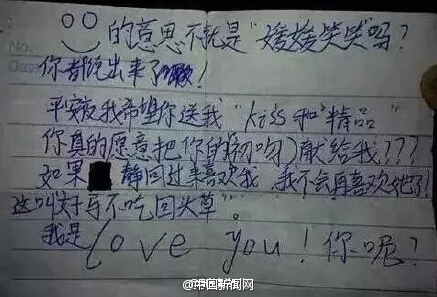 No.
Date
的意思不就是“媛媛笑笑”吗?
你都说出来了!
平安夜我希望你送我“kiss和“精品”
你真的愿意把你的(初吻)献给我???
如果 静回过来喜欢我,我不会再喜欢她了!
这叫好马不吃回头草”。
我是Love you!你呢?
@中国新闻网